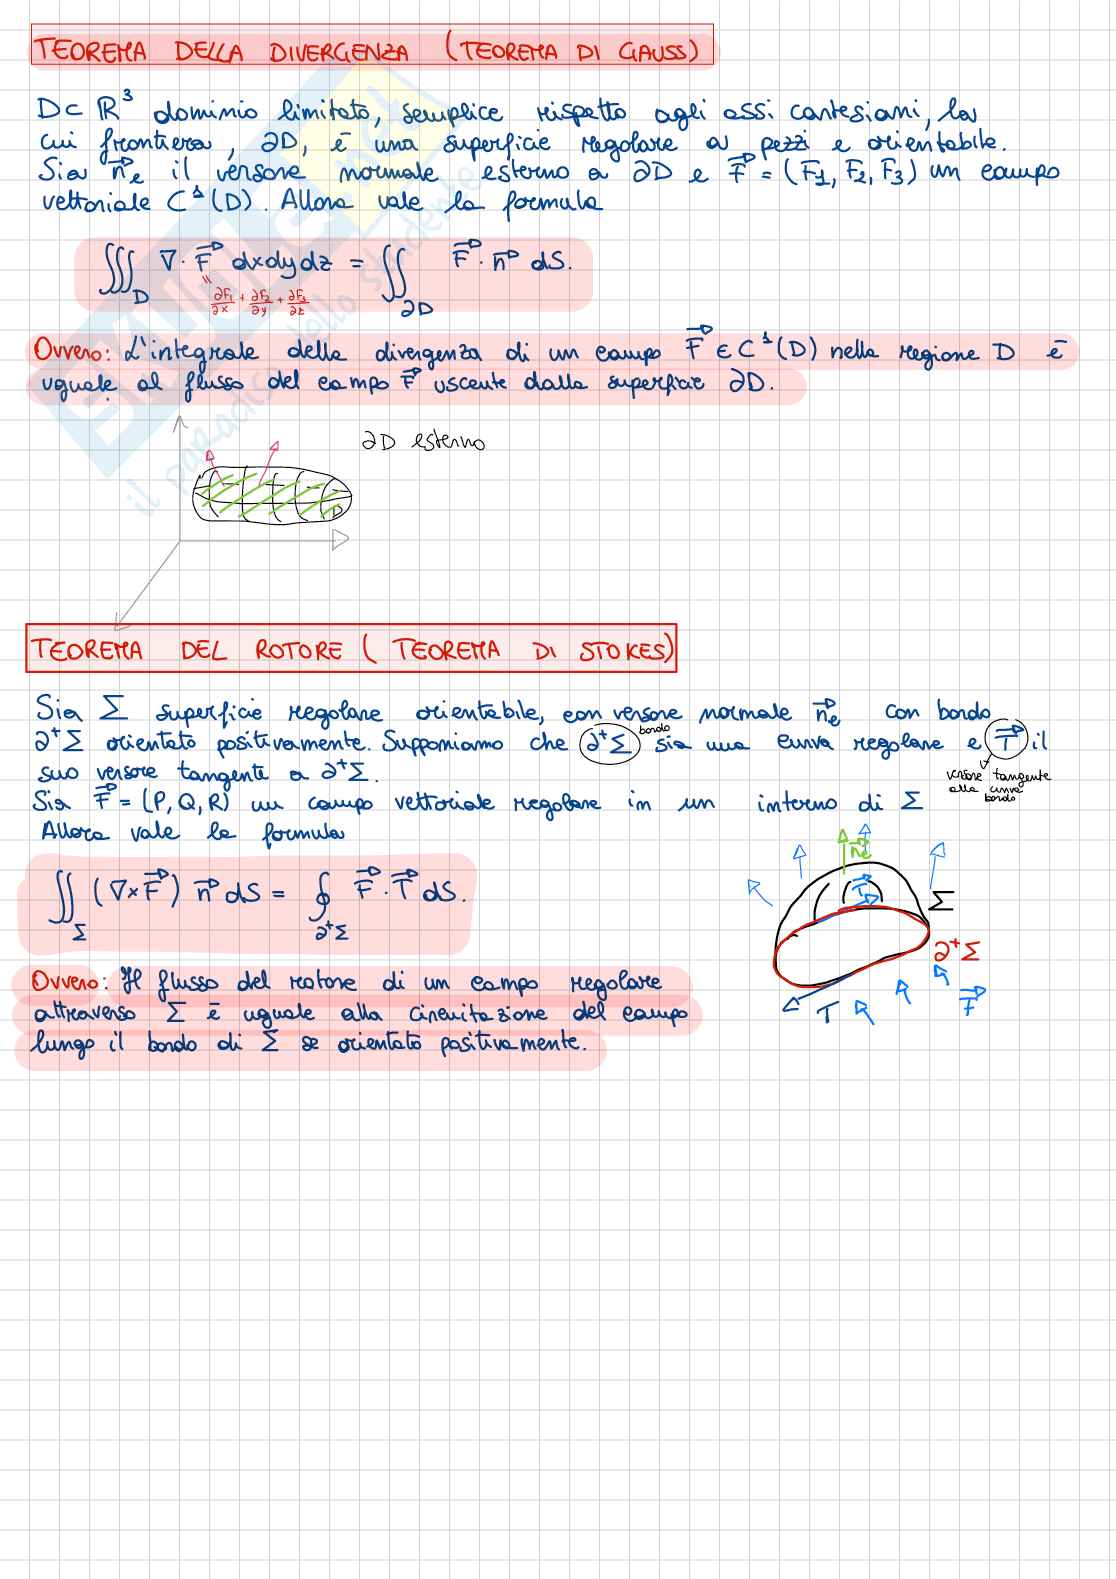 TEOREMA DELLA DIVERGENZA (TEOREMA DI GAUSS)
D⊂ ℝ³ dominio limitato, semplice rispetto agli assi cartesiani, la
cui frontiera, ∂D, è una superficie regolare a pezzi e orientabile.
Sia n⃗e il versore normale esterno a ∂D e F⃗ = (F1, F2, F3) un campo
vettoriale C¹(D). Allora vale la formula
∭_D ∇· F⃗ dxdydz = ∬_∂D F⃗ · n⃗ dS.
" ∂F₁/∂x + ∂F₂/∂y + ∂F₃/∂z
Ovvero: L'integrale della divergenza di un campo F⃗ ∈ C¹(D) nella regione D è
uguale al flusso del campo F⃗ uscente dalla superficie ∂D.
∂D esterno
D
TEOREMA DEL ROTORE ( TEOREMA DI STOKES)
Sia Σ superficie regolare orientabile, con versore normale n⃗e con bordo
∂⁺Σ orientato positivamente. Supponiamo che ∂⁺Σ bordo sia una curva regolare e T⃗ il
suo versore tangente a ∂⁺Σ.
versore tangente
alla curva
bordo
Sia F⃗ = (P, Q, R) un campo vettoriale regolare in un interno di Σ
Allora vale la formula
∬_Σ (∇×F⃗) n⃗ dS = ∮_∂⁺Σ F⃗ · T⃗ dS.
n⃗e
T⃗
Σ
∂⁺Σ
T
F⃗
Ovvero: Il flusso del rotore di un campo regolare
attraverso Σ è uguale alla circuitazione del campo
lungo il bordo di Σ se orientato positivamente.
il paradiso dello studente